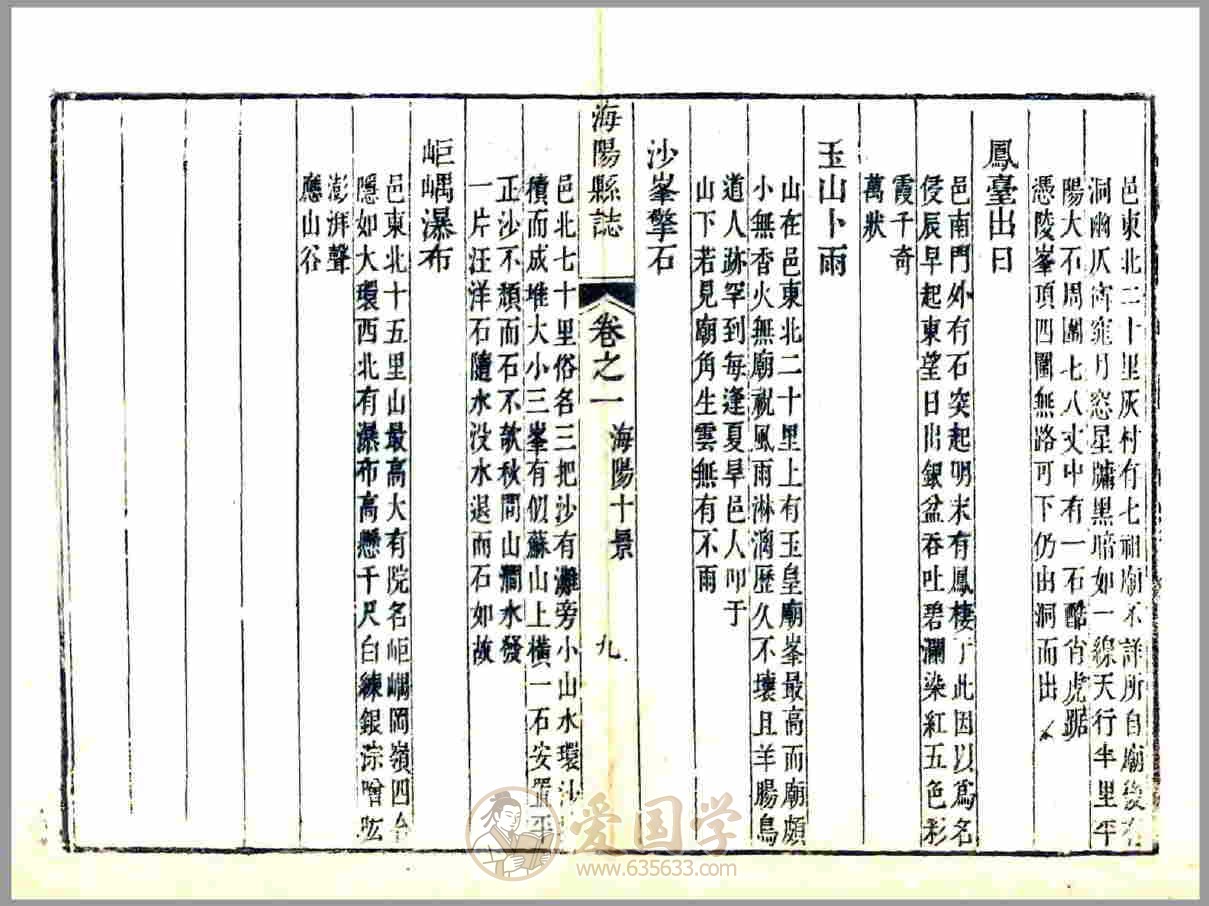 邑東北二十里灰村有七祖廟不詳所自廟後有
洞幽爪 月窓星牖黑暗如一線天行半里平
陽大石周圍七八丈中有一石酷肖虎踞
憑陵峯項四圍無路可下仍出洞而出
鳳臺出日
邑南門外有石突起明末有鳳棲于此因以爲名
侵辰早起東望日出銀盆吞吐碧瀾染紅五色彩
霞千奇
萬狀
玉山卜雨
山在邑東北二十里上有玉皇廟峯最高而廟頗
小無香火無廟祝風雨淋漓歷久不壞且羊腸鳥
道人跡罕到每逢夏旱邑人叩于
山下若見廟角生雲無有不雨
沙峯擎石
海陽縣誌
卷之一
海陽十景
九
邑北七十里俗名三把沙有灘旁小山水環沙
積而成堆大小三峯有似蘇山上橫一石安置平
正沙不頹而石不欹秋間山澗水發
一片汪洋石隨水没水退而石如故
岠嵎瀑布
邑東北十五里山最高大有院名岠嵎岡嶺四合
隱如大環西北有瀑布高懸千尺白練銀淙噌吰
澎湃聲
應山谷
爱国学
www.635633.com